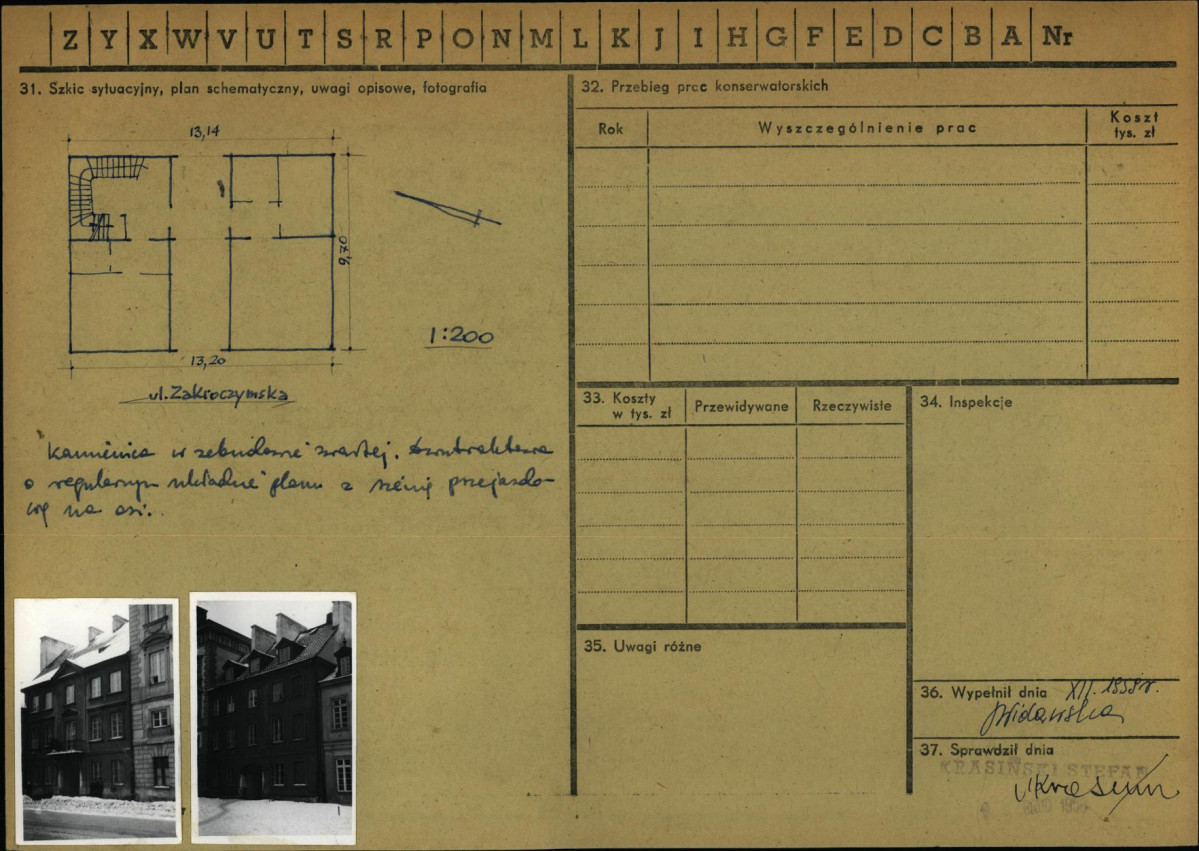 Z Y X W V U T S R P O N M L K J I H G F E D C B A Nr
31. Szkic sytuacyjny, plan schematyczny, uwagi opisowe, fotografia
13,14
9,70
1:200
13,20
ul. Zakroczymska
kamienica w zabudowie zwartej. Dwutraktowa
o regularnym układzie planu z sienią przejazdo-
wą na osi.
32. Przebieg prac konserwatorskich
Rok
Wyszczególnienie prac
Koszt
tys. zł
33. Koszty
w tys. zł
Przewidywane
Rzeczywiste
34. Inspekcje
35. Uwagi różne
36. Wypełnił dnia XII. 1959 r.
37. Sprawdził dnia
KRASIŃSKI STEFAN